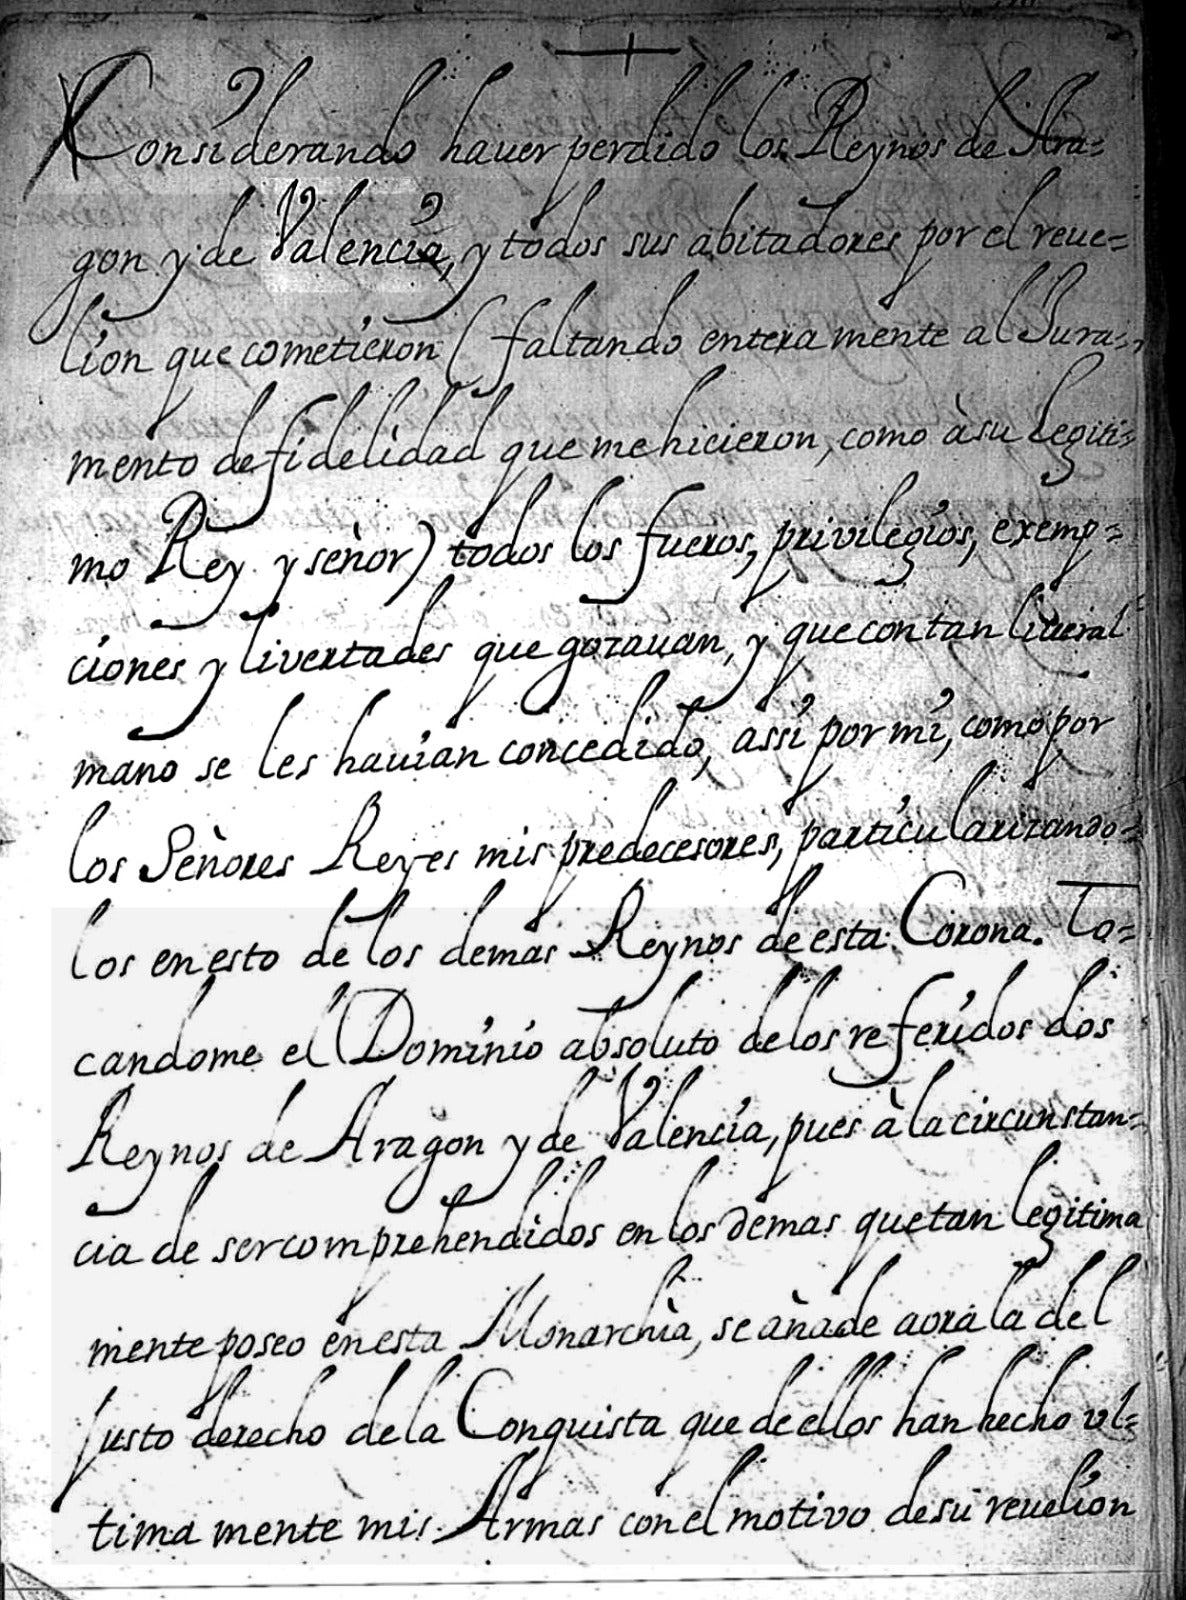 Considerando hauer perdido los Reynos de Ara=
gon y de Valencia, y todos sus abitadores por el reue=
lion que cometieron (faltando entera mente al Jura=
mento de fidelidad que me hicieron, como à su legiti=
mo Rey y señor) todos los fueros, privilegios, exemp=
ciones y livertades que gozauan, y que con tan liueral
mano se les hauian concedido, assi por mi, como por
los Señores Reyes mis predecesores, particularizando=
los en esto de los demas Reynos de esta Corona. To=
candome el Dominio absoluto de los referidos dos
Reynos de Aragon y de Valencia, pues à la circunstan=
cia de ser comprehendidos en los demas que tan legitima
mente poseo en esta Monarchìa, se añade aora la del
justo derecho de la Conquista que de ellos han hecho vl=
tima mente mis Armas con el motivo de su reuelion